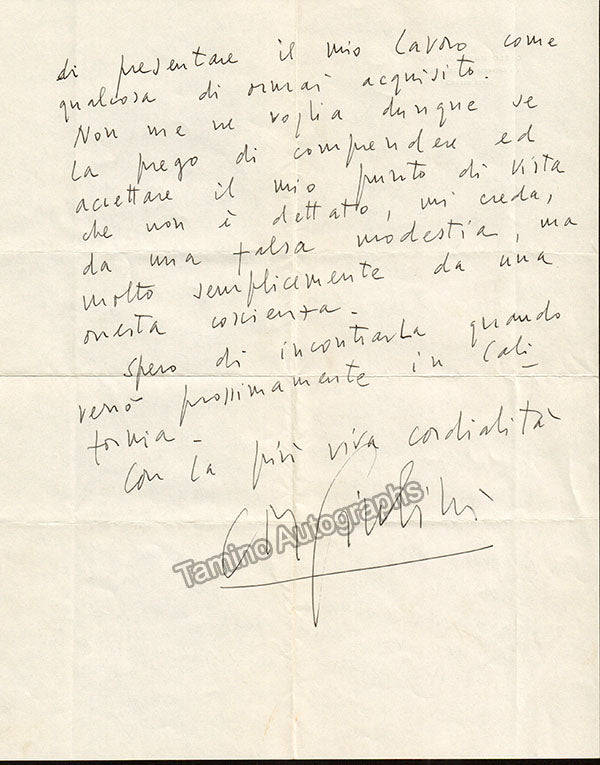 di presentare il mio lavoro come
qualcosa di ormai acquisito.
Non me ne voglia dunque se
la prego di comprendere ed
accettare il mio punto di vista
che non è dettato, mi creda,
da una falsa modestia, ma
molto semplicemente da una
onesta coscienza.
Spero di incontrarla quando
verrò prossimamente in Cali
fornia.
Con la più viva cordialità
CM Giulini
Tamino Autographs